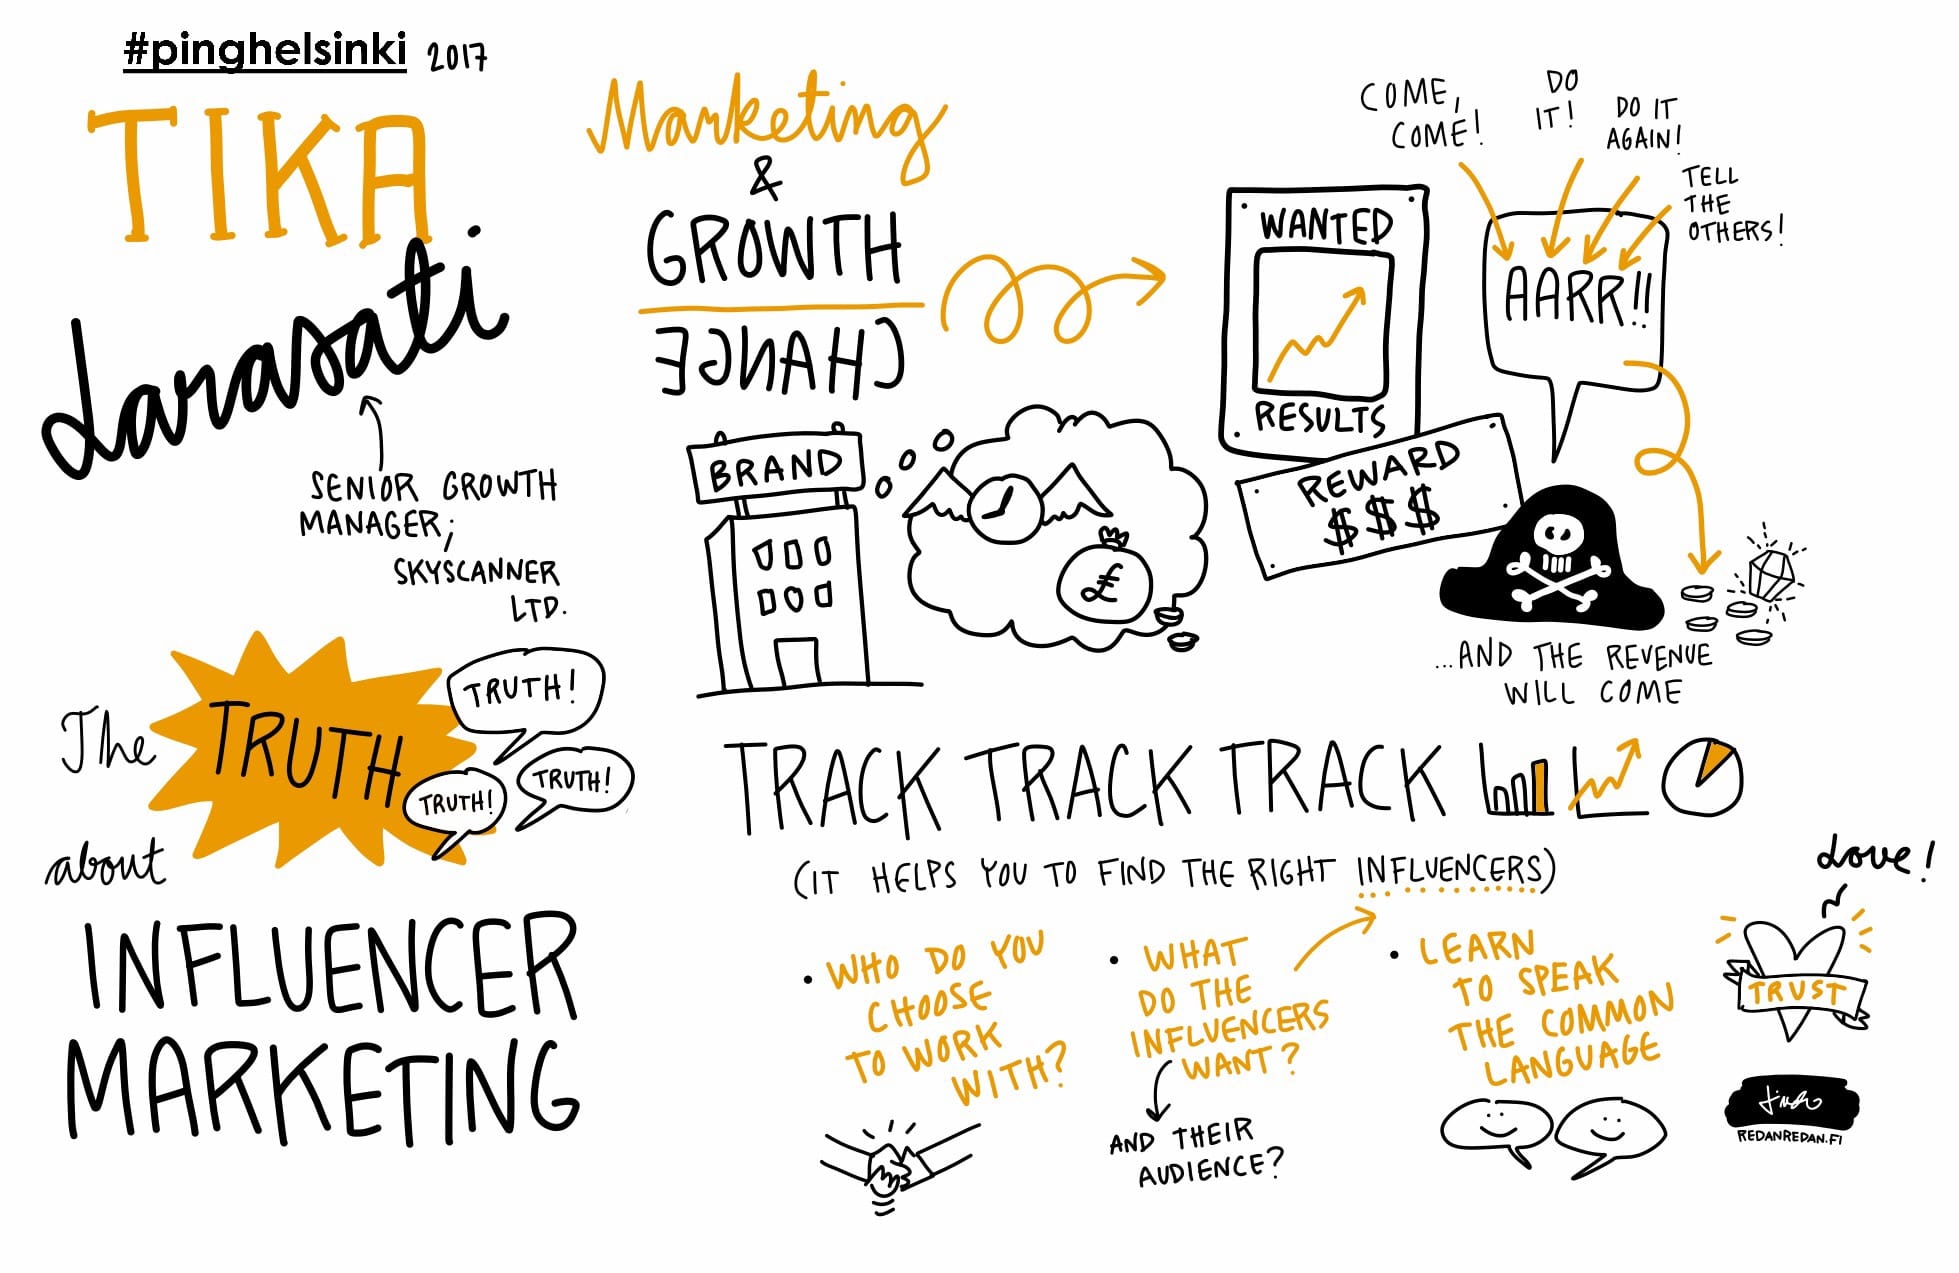 #pinghelsinki 2017
TIKA
Larasati
SENIOR GROWTH
MANAGER;
SKYSCANNER
LTD.
The TRUTH
TRUTH!
TRUTH!
TRUTH!
about
INFLUENCER
MARKETING
Marketing
&
GROWTH
CHANGE
BRAND
£
WANTED
RESULTS
REWARD
$$$
COME,
COME!
DO
IT!
DO IT
AGAIN!
TELL
THE
OTHERS!
AARR!!
...AND THE REVENUE
WILL COME
TRACK TRACK TRACK
(IT HELPS YOU TO FIND THE RIGHT INFLUENCERS)
• WHO DO YOU
CHOOSE
TO WORK
WITH?
• WHAT
DO THE
INFLUENCERS
WANT?
AND THEIR
AUDIENCE?
• LEARN
TO SPEAK
THE COMMON
LANGUAGE
Love!
TRUST
REDANREDAN.FI